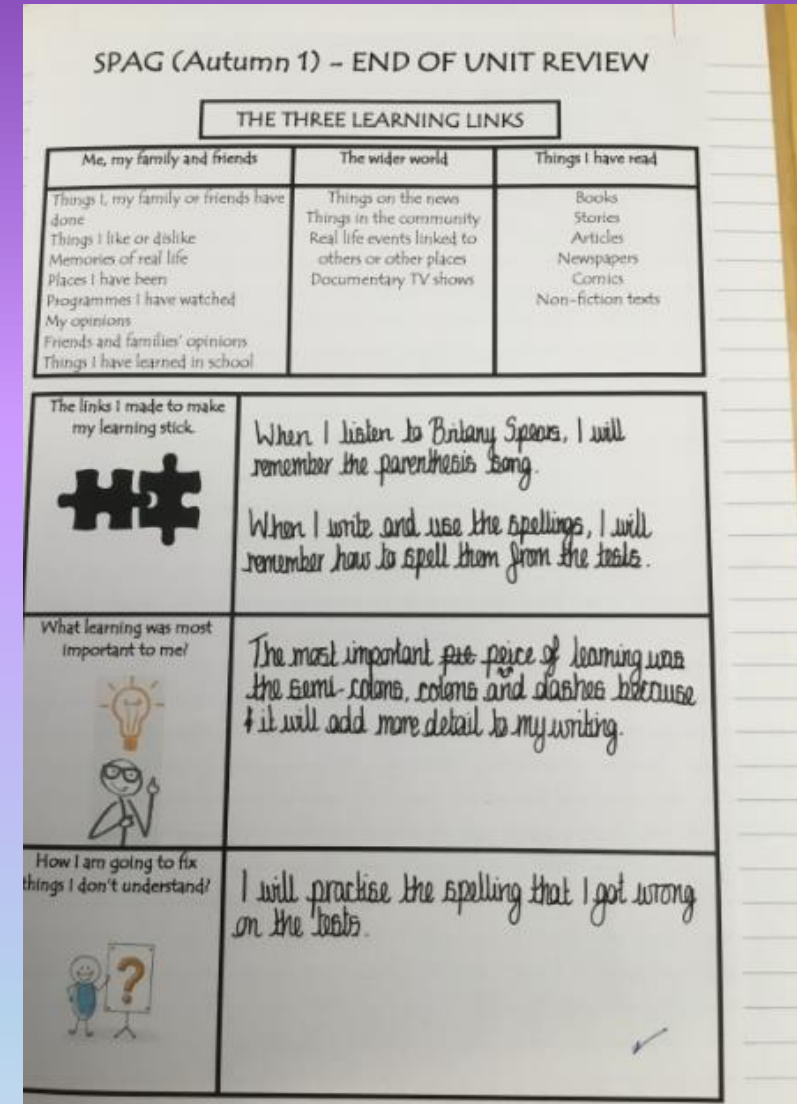 SPAG (Autumn 1) – END OF UNIT REVIEW
THE THREE LEARNING LINKS
Me, my family and friends
Things I, my family or friends have
done
Things I like or dislike
Memories of real life
Places I have been
Programmes I have watched
My opinions
Friends and families' opinions
Things I have learned in school
The wider world
Things on the news
Things in the community
Real life events linked to
others or other places
Documentary TV shows
Things I have read
Books
Stories
Articles
Newspapers
Comics
Non-fiction texts
The links I made to make
my learning stick.
When I listen to Britany Spears, I will
remember the parenthesis song.
When I write and use the spellings, I will
remember how to spell them from the tests.
What learning was most
important to me?
The most important pie peice of learning was
the semi-colons, colons and dashes because
it will add more detail to my writing.
How I am going to fix
things I don't understand?
I will practise the spelling that I got wrong
on the tests.